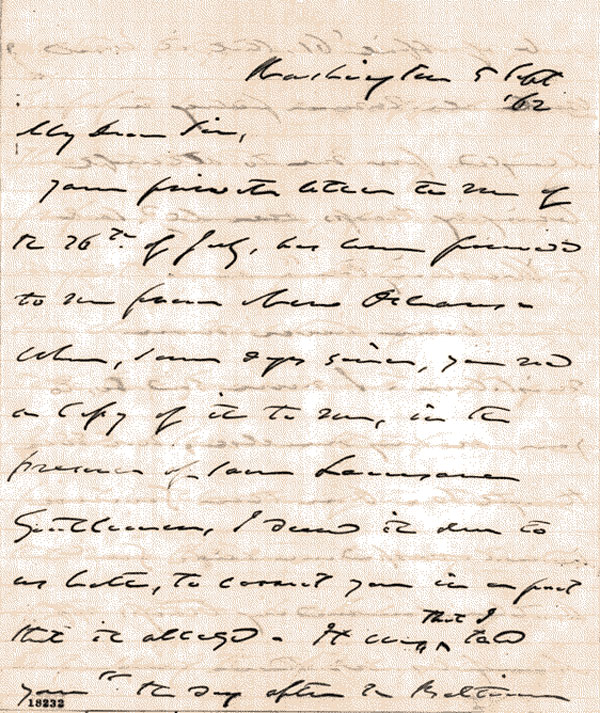 Washington 5 Sept
'62
My Dear Sir,
Your private letter to me of
the 26th. of July, has been forwd
to me from New Orleans.
When, some days since, you read
a Copy of it to me, in the
presence of some Louisiana
Gentlemen, I deemed it due to
us both, to correct you in a fact
that it alleged. It was, that I told
you the day after the Baltimore
18232